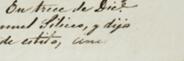 En trece de Dic.e
nuel Silico, y dijo
de estilo, une